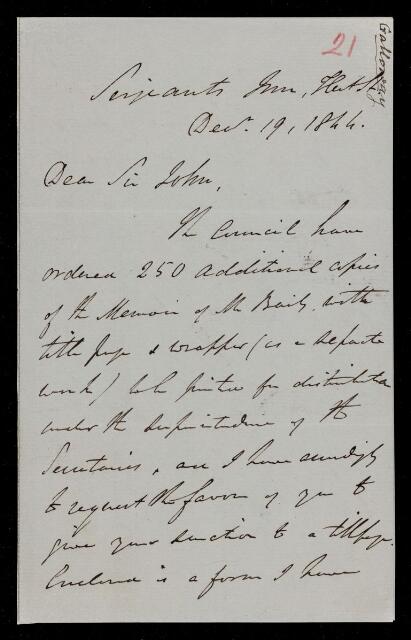 21
Galloway
Serjeants Inn, Fleet St
Decr. 19, 1844.
Dear Sir John,
The Council have
ordered 250 additional copies
of the Memoir of Mr Baily, with
title page & wrapper (as a separate
work) to be printed for distribution
under the superintendence of the
Secretaries, and I have accordingly
to request the favor of you to
give your sanction to a titlepage.
Enclosed is a form I have